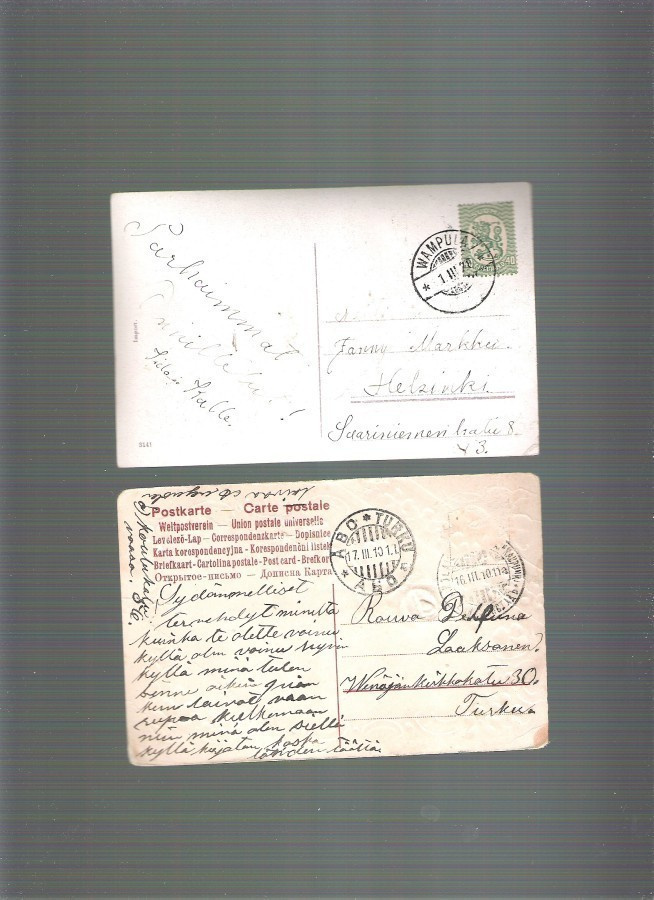 Parhaimmat
Onnittelut!
Sidas Kalle.
Import.
8541
WAMPULA
1.III.20
40
Fanny Markki.
Helsinki.
Saariniemenkatu 8.
3.
Postkarte — Carte postale
Weltpostverein — Union postale universelle
Levelező-Lap — Correspondenzkarte — Dopisnice
Karta korespondencyjna — Korespondenční listek
Briefkaart - Cartolina postale - Post card - Brefkort
Открытое письмо — Дописна Карта
ÅBO * TURKU
17.III.10
* ABO *
16.III.10
koulukatu
vaasa.
Sydämmelliset
tervehdyt minulta
kuinka te olette voinu
kyllä olen voinu hyvin
kyllä minä tulen
sinne oikein pian
kun laivat vaan
rupaa kulkemaan
niin minä olen siellä
kyllä kirjotan koska
lähden täältä
Rouva Delfiina
Laaksonen.
Wenäjänkirkkokatu 30.
Turku.